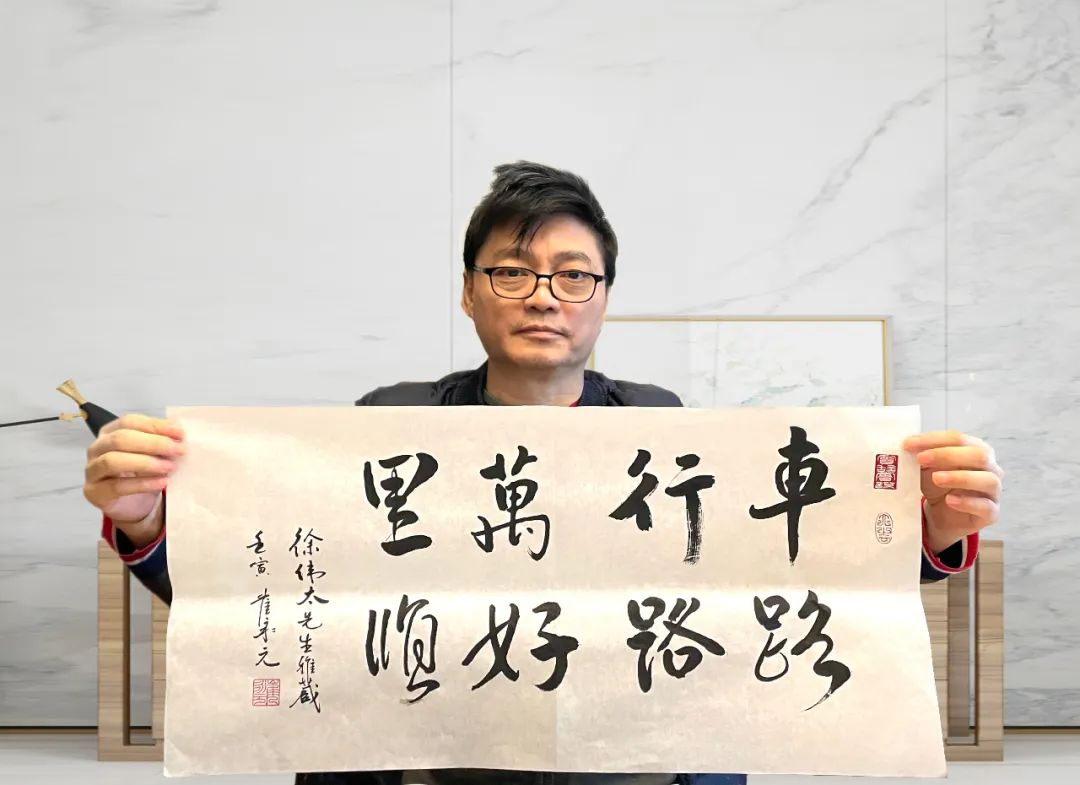 車行萬里
路路好順
徐伟太先生雅藏
壬寅 崔永元